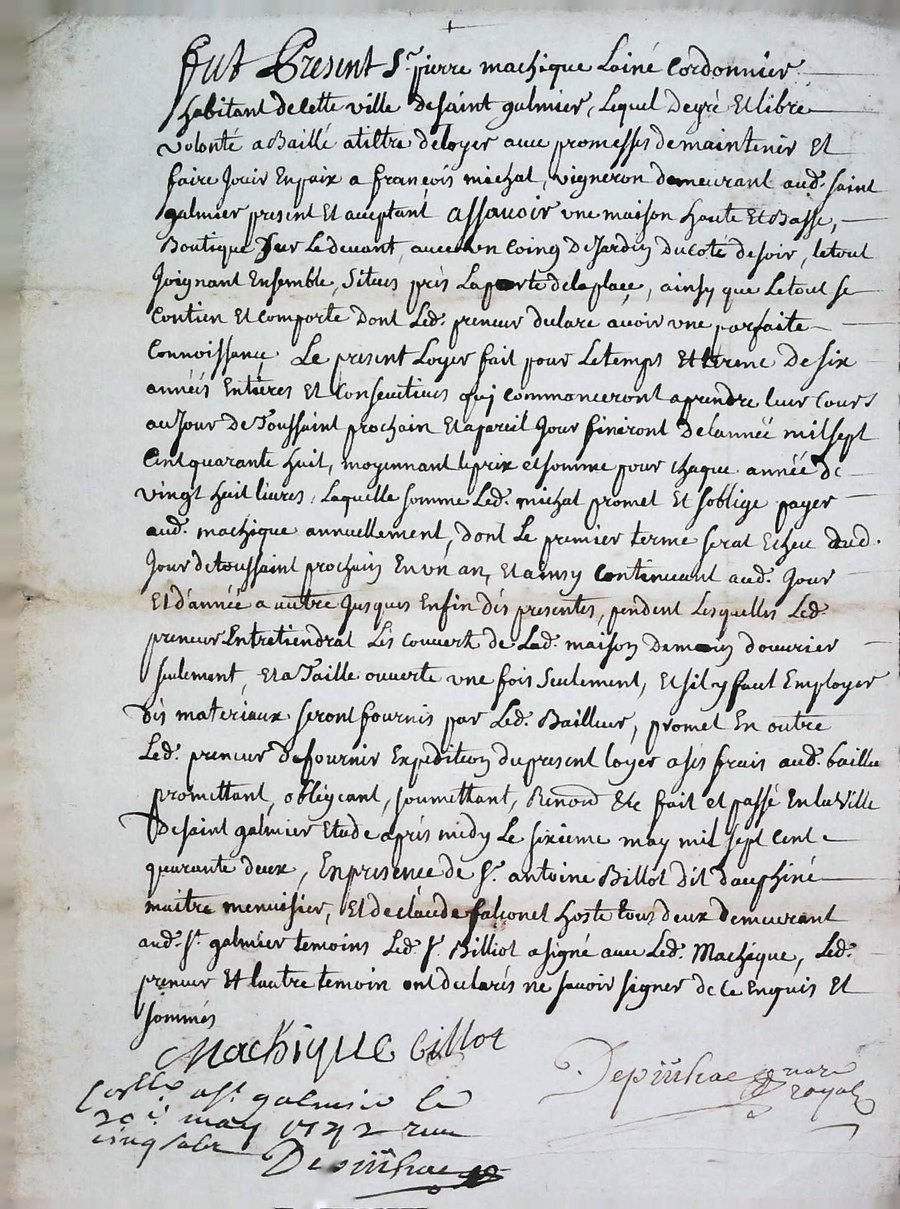 fut Present Sr. pierre machique Lainé Cordonnier
habitant de Cette ville de saint galmier, Lequel de gré Et libre
volonté a Baillé a tiltre de loyer avec promesses de maintenir Et
faire Jouir En paix a françois michat, vigneron demeurant aud. saint
galmier present Et aceptant assavoir vne maison haute Et Basse,
Boutique Sur Le devant, avec un Coing De Jardin Du Coté de soir, le tout
Joignant Ensemble, Situés près La porte de la place, ainsy que Le tout se
Contien Et Comporte Dont Led. preneur declare avoir vne parfaite
Connoissance Le present Loyer fait pour Le temps Et terme de Six
années Entieres Et Consecutives quj Commanceront a prendre leur Cours
au Jour de Toussaint prochain Et a pareil Jour fineront de lannée mil sept
Cent quarante huit, moyennant le prix et somme pour chaque année de
vingt huit livres, Laquelle somme Led. michat promet Et soblige payer
aud. machique annuellement, dont Le premier terme serat Echeu dud.
Jour de toussaint prochain En vn an, Et ainsy Continuant aud. Jour
Et d'année a autre Jusques Enfin des presentes, pendent Lesquelles Led.
preneur Entretiendrat Les Couvert de Lad. maison De main d'ouvrier
seulement, Et a Taille ouverte vne fois Seulement, Et sil y faut Employer
des materiaux seront fournis par Led. Bailleur, promet En outre
Led. preneur de fournir Expedition du present loyer a ses frais aud. bailleur
promettant, obligeant, soumettant, Renond Etc fait et passé En la Ville
De saint galmier Etude après midy Le sixieme may mil sept Cent
quarante deux, En presence de Sr. antoine Billot dit dauphiné
maitre menuisier, Et de claude falconet hoste tous deux demeurant
aud. St. galmier temoins Led. Sr. Billiot a signé avec Led. Machique, Led.
preneur Et lautre temoin ont declarés ne savoir signer de Ce Enquis Et
sommés
Machique billot
Depinhac notre
royal
Collé a St. galmier le
may 1742 recu
cinq sols
Depinhac